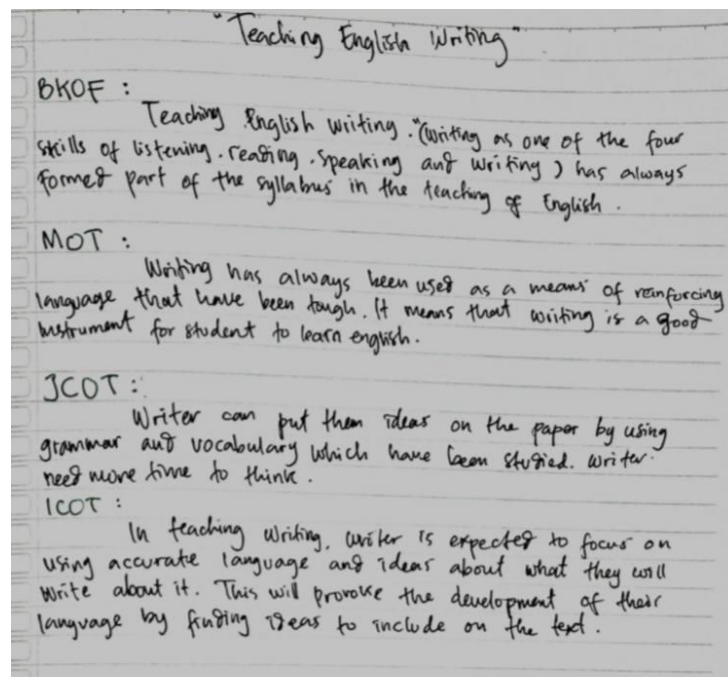 "Teaching English Writing"
BKOF :
Teaching English writing. "(writing as one of the four
skills of listening. reading. speaking and writing) has always
formed part of the syllabus in the teaching of English.
MOT :
Writing has always been used as a means of reinforcing
language that have been tough. It means that writing is a good
instrument for student to learn english.
JCOT :
Writer can put them ideas on the paper by using
grammar and vocabulary which have been studied. writer
need more time to think.
ICOT :
In teaching writing, writer is expected to focus on
using accurate language and ideas about what they will
write about it. This will provoke the development of their
language by finding ideas to include on the text.